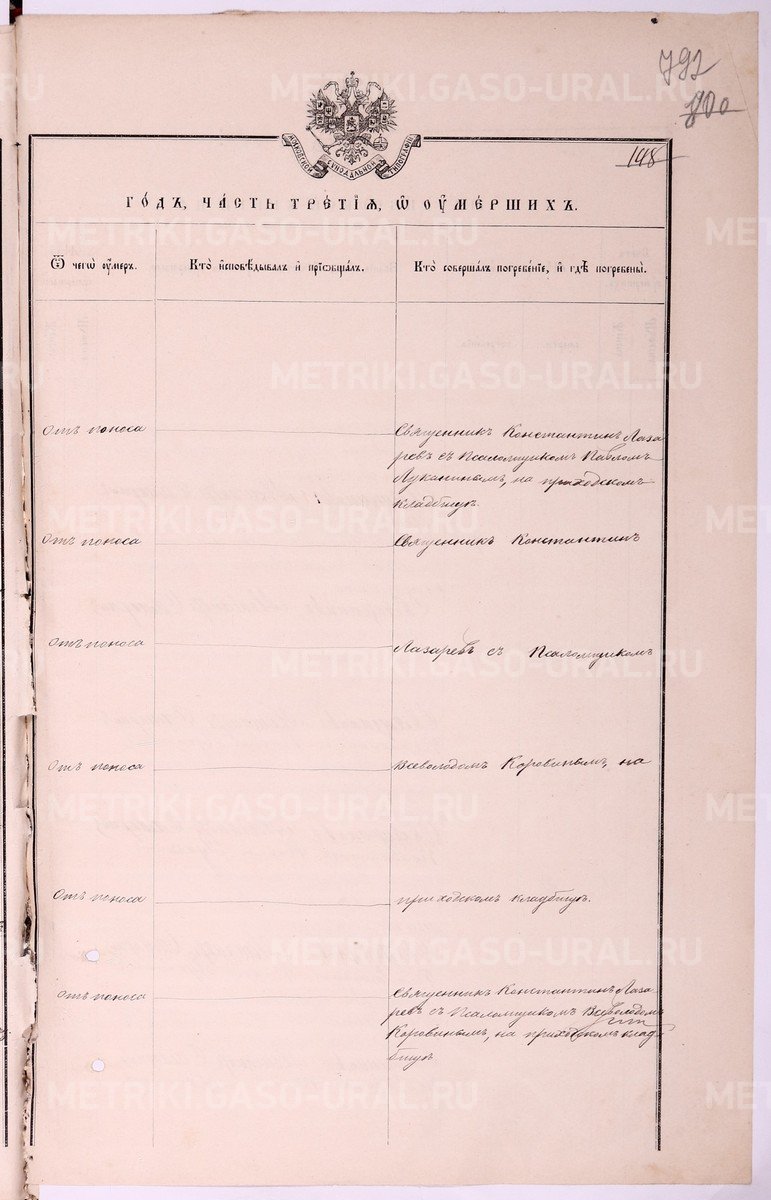 792
800
148
МОСКОВСКОЙ СѴНОДАЛЬНОЙ ТИПОГРАФІИ
ГО́ДЪ, ЧА́СТЬ ТРЕ́ТІѦ, Ѡ҆ ОУ҆МЕ́РШИХЪ.
Ѿ чегѡ̀ оу҆́меръ.
Кто̀ и҆сповѣ́дывалъ и҆ прїѡбща́лъ.
Кто̀ соверша́лъ погребе́нїе, и҆ гдѣ̀ погребены̀.
Отъ поноса
Священникъ Константинъ Лаза
ревъ съ Псаломщикомъ Павломъ
Луканинымъ, на приходскомъ
кладбищѣ.
Отъ поноса
Священникъ Константинъ
Отъ поноса
Лазаревъ съ Псаломщикомъ
Отъ поноса
Всеволодомъ Коровинымъ, на
Отъ поноса
приходскомъ кладбищѣ.
Отъ поноса
Священникъ Константинъ Лаза
ревъ съ Псаломщикомъ Всеволодомъ
Коровинымъ, на приходскомъ клад
бищѣ
METRIKI.GASO-URAL.RU